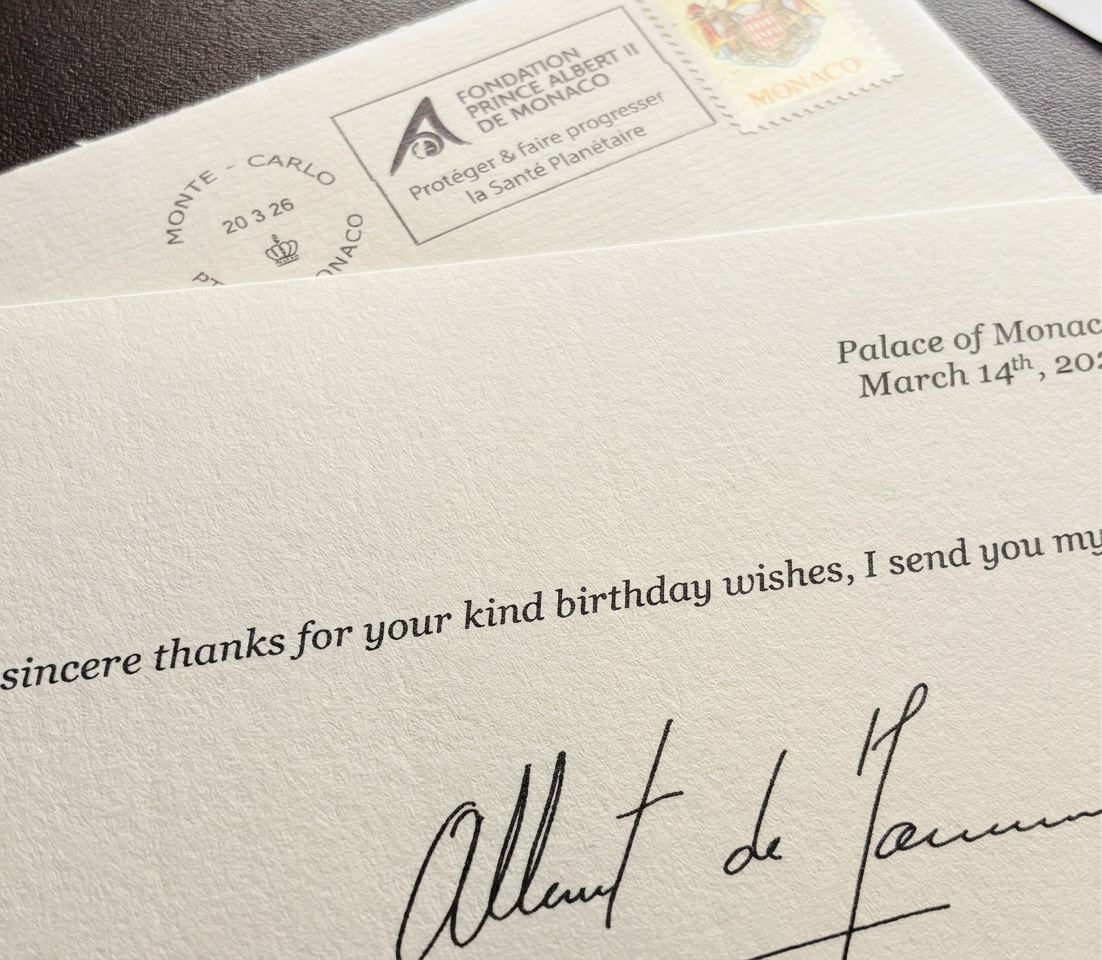 MONTE - CARLO
20 3 26
FONDATION
PRINCE ALBERT II
DE MONACO
Protéger & faire progresser
la Santé Planétaire
MONACO
Palace of Monac
March 14th, 202
sincere thanks for your kind birthday wishes, I send you my
Albert de Monaco